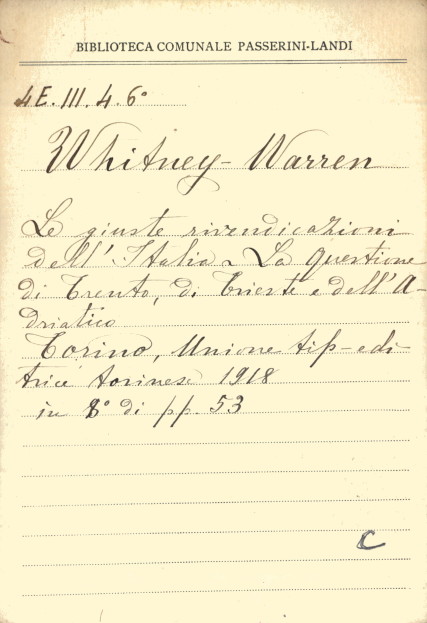 BIBLIOTECA COMUNALE PASSERINI-LANDI
4E. III. 4. 6°
Whitney-Warren
Le giuste rivendicazioni
dell'Italia - La questione
di Trento, di Trieste e dell'A-
driatico
Torino, Unione tip-edi-
trice torinese 1918
in 8° di pp. 53
C